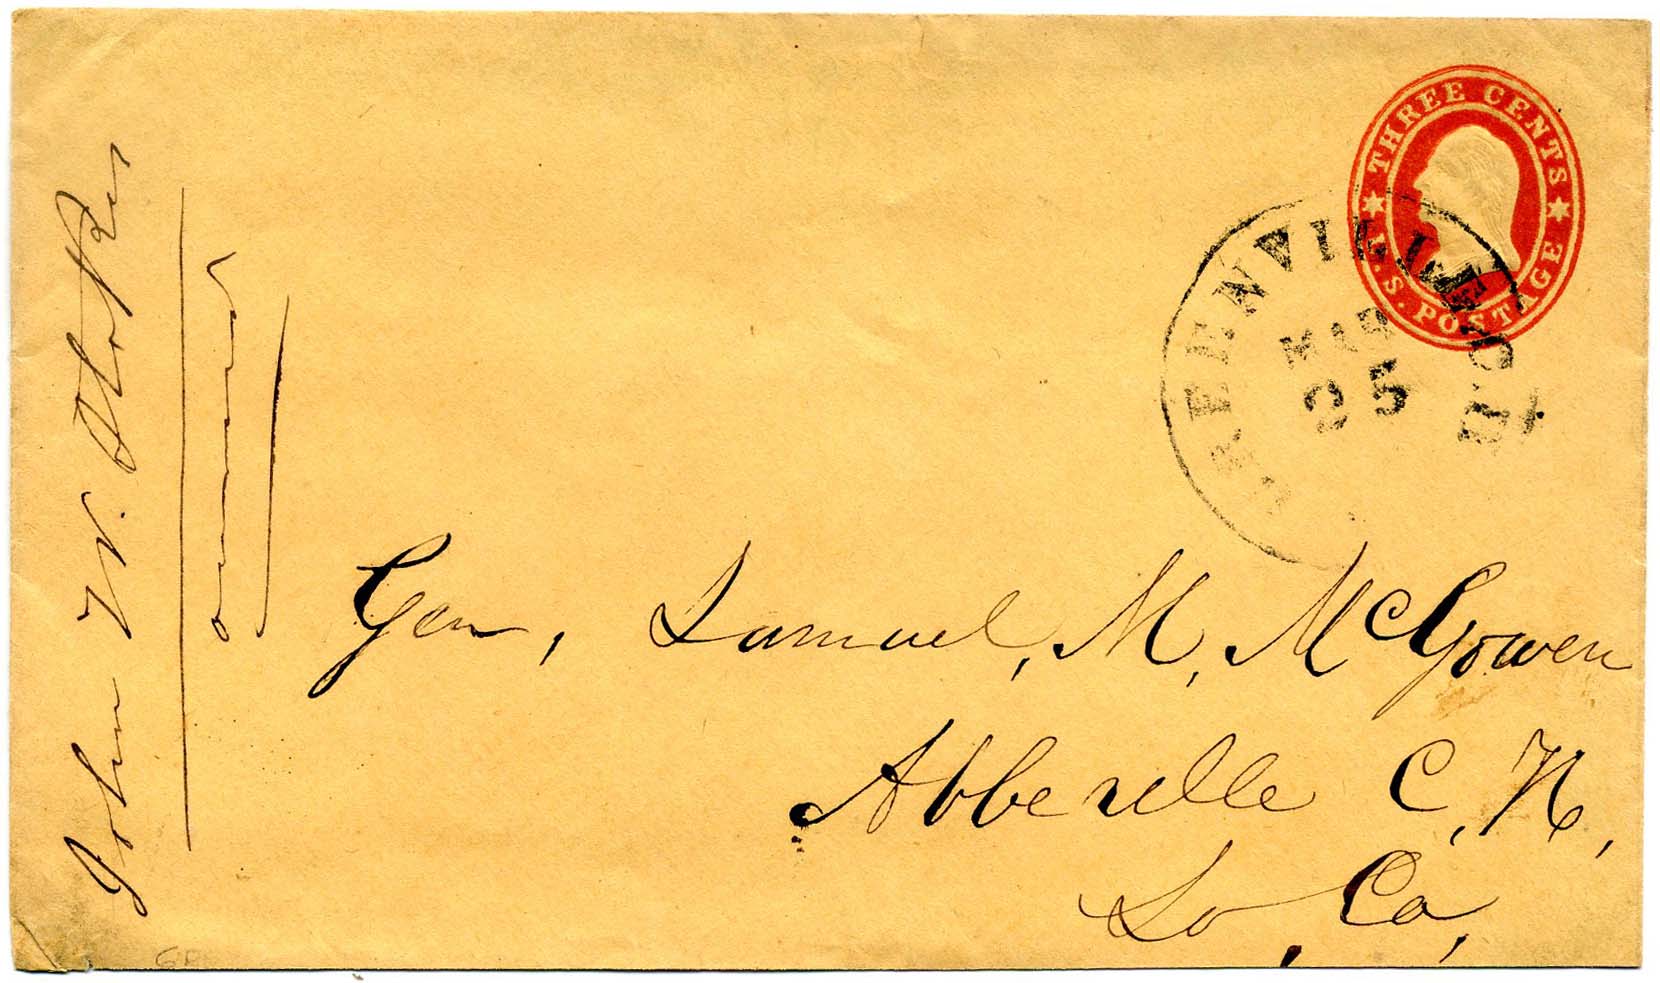 THREE CENTS
U.S. POSTAGE
GREENVILLE
MAR
25
John W. Stokes
Gen, Samuel, M, McGowen
Abbeville C, H,
So, Ca,